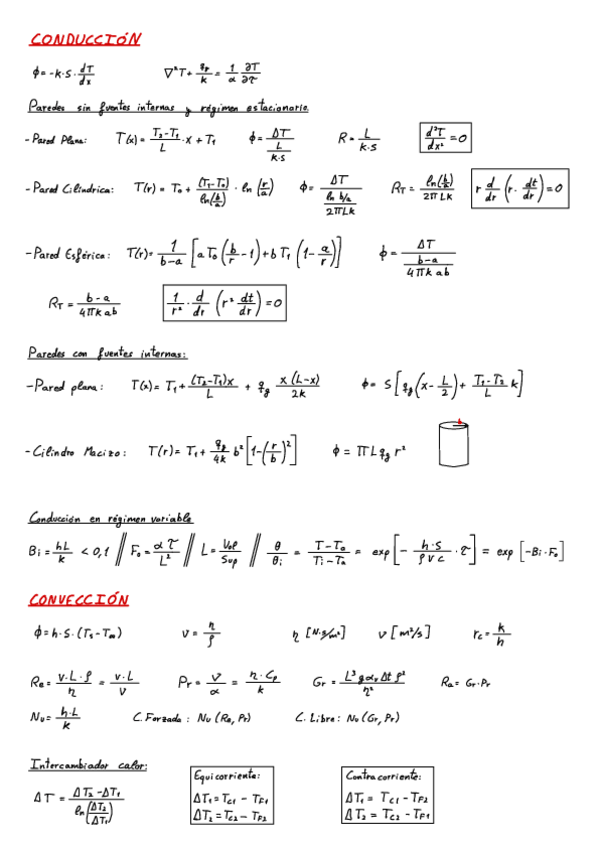 CONDUCCIÓN
ϕ = -k·S·dT/dx    ∇²T + q_g/k = 1/α ∂T/∂τ
Paredes sin fuentes internas y régimen estacionario.
- Pared Plana: T(x) = (T₂-T₁)/L · x + T₁    ϕ = ΔT/(L/(k·S))    R = L/(k·S)    d²T/dx² = 0
- Pared Cilíndrica: T(r) = T₀ + (T₁-T₀)/ln(b/a) · ln(r/a)    ϕ = ΔT/(ln b/a / 2πLk)    R_T = ln(b/a)/(2πLk)    r d/dr (r· dt/dr) = 0
- Pared Esférica: T(r) = 1/(b-a) [a T₀ (b/r - 1) + b T₁ (1 - a/r)]    ϕ = ΔT/((b-a)/(4πk ab))
R_T = (b-a)/(4πk ab)    1/r² · d/dr (r² dt/dr) = 0
Paredes con fuentes internas:
- Pared plana: T(x) = T₁ + (T₂-T₁)x/L + q_g x(L-x)/2k    ϕ = S[q_g(x - L/2) + (T₁-T₂)/L k]
- Cilindro Macizo: T(r) = T₁ + q_g/4k b² [1-(r/b)²]    ϕ = πL q_g r²
Conducción en régimen variable
Bi = hL/k < 0,1 // F₀ = ατ/L² // L = Vol/Sup // θ/θi = (T-Ta)/(Ti-Ta) = exp[- h·S/(ρ v c) · τ] = exp[-Bi·F₀]
CONVECCIÓN
ϕ = h·S·(Ts-T∞)    ν = η/ρ    η [N·s/m²]    ν [m²/s]    rc = k/h
Re = v·L·ρ/η = v·L/ν    Pr = ν/α = η·Cp/k    Gr = L³ g α_v Δt ρ²/η²    Ra = Gr·Pr
Nu = h·L/k    C. Forzada: Nu (Re, Pr)    C. Libre: Nu (Gr, Pr)
Intercambiador calor:
ΔT = (ΔT₂-ΔT₁)/ln(ΔT₂/ΔT₁)
Equicorriente:
ΔT₁ = T_C1 - T_F1
ΔT₂ = T_C2 - T_F2
Contracorriente:
ΔT₁ = T_C1 - T_F2
ΔT₂ = T_C2 - T_F1